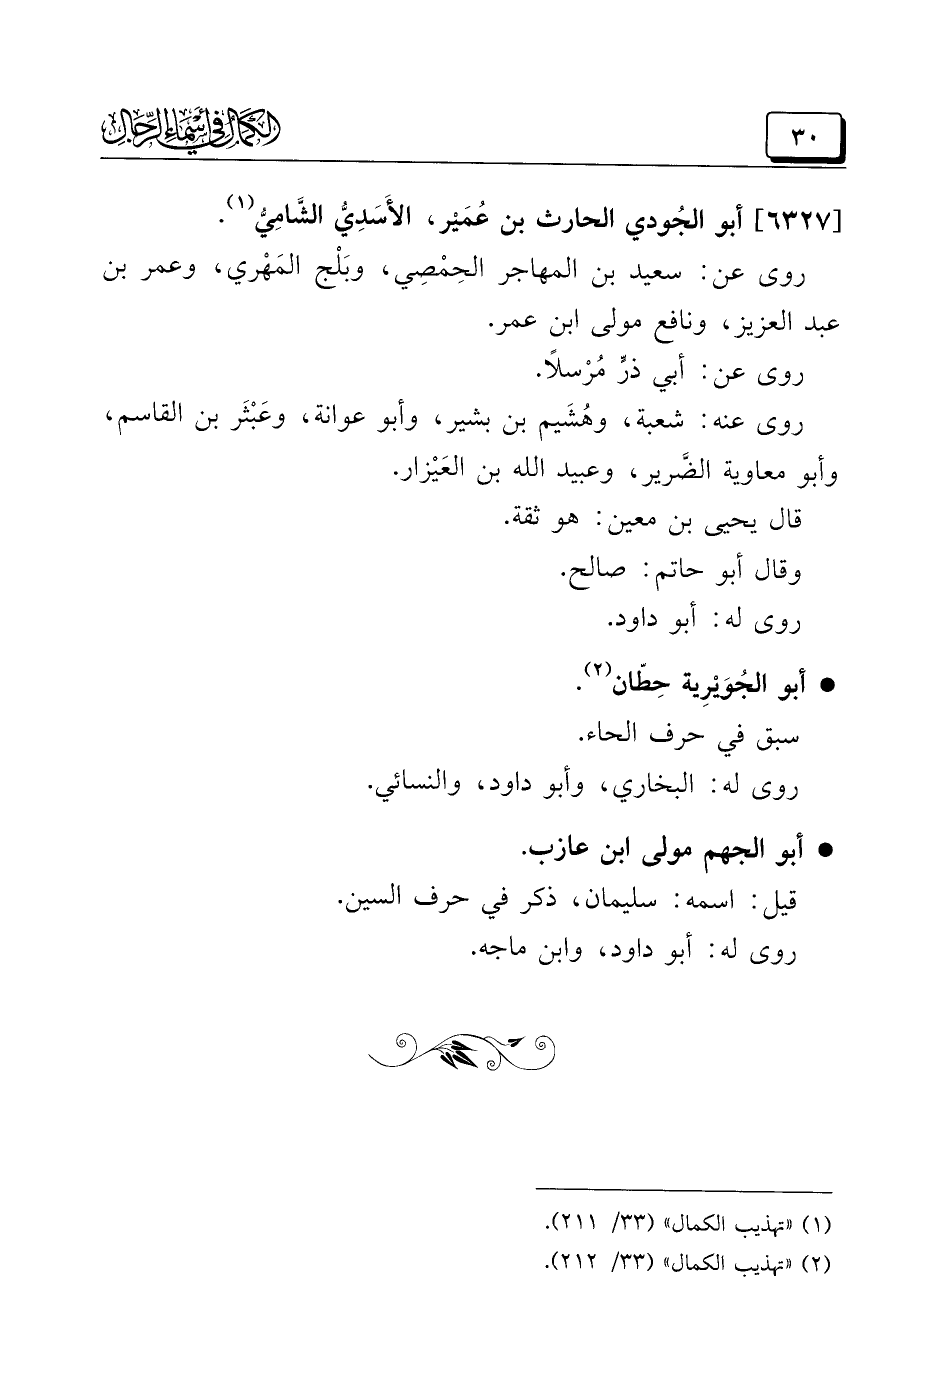 ٣٠
الكمال في أسماء الرجال
[٦٣٢٧] أبو الجُودي الحارث بن عُمَيْر، الأَسَدِيُّ الشَّامِيُّ(١).
روى عن: سعيد بن المهاجر الحِمْصِي، وبَلْج المَهْري، وعمر بن
عبد العزيز، ونافع مولى ابن عمر.
روى عن: أبي ذرٍّ مُرْسلاً.
روى عنه: شعبة، وهُشَيم بن بشير، وأبو عوانة، وعَبْثَر بن القاسم،
وأبو معاوية الضَّرير، وعبيد الله بن العَيْزار.
قال يحيى بن معين: هو ثقة.
وقال أبو حاتم: صالح.
روى له: أبو داود.
● أبو الجُوَيْرِية حِطّان(٢).
سبق في حرف الحاء.
روى له: البخاري، وأبو داود، والنسائي.
● أبو الجهم مولى ابن عازب.
قيل: اسمه: سليمان، ذكر في حرف السين.
روى له: أبو داود، وابن ماجه.
(١) «تهذيب الكمال» (٣٣/ ٢١١).
(٢) «تهذيب الكمال» (٣٣/ ٢١٢).